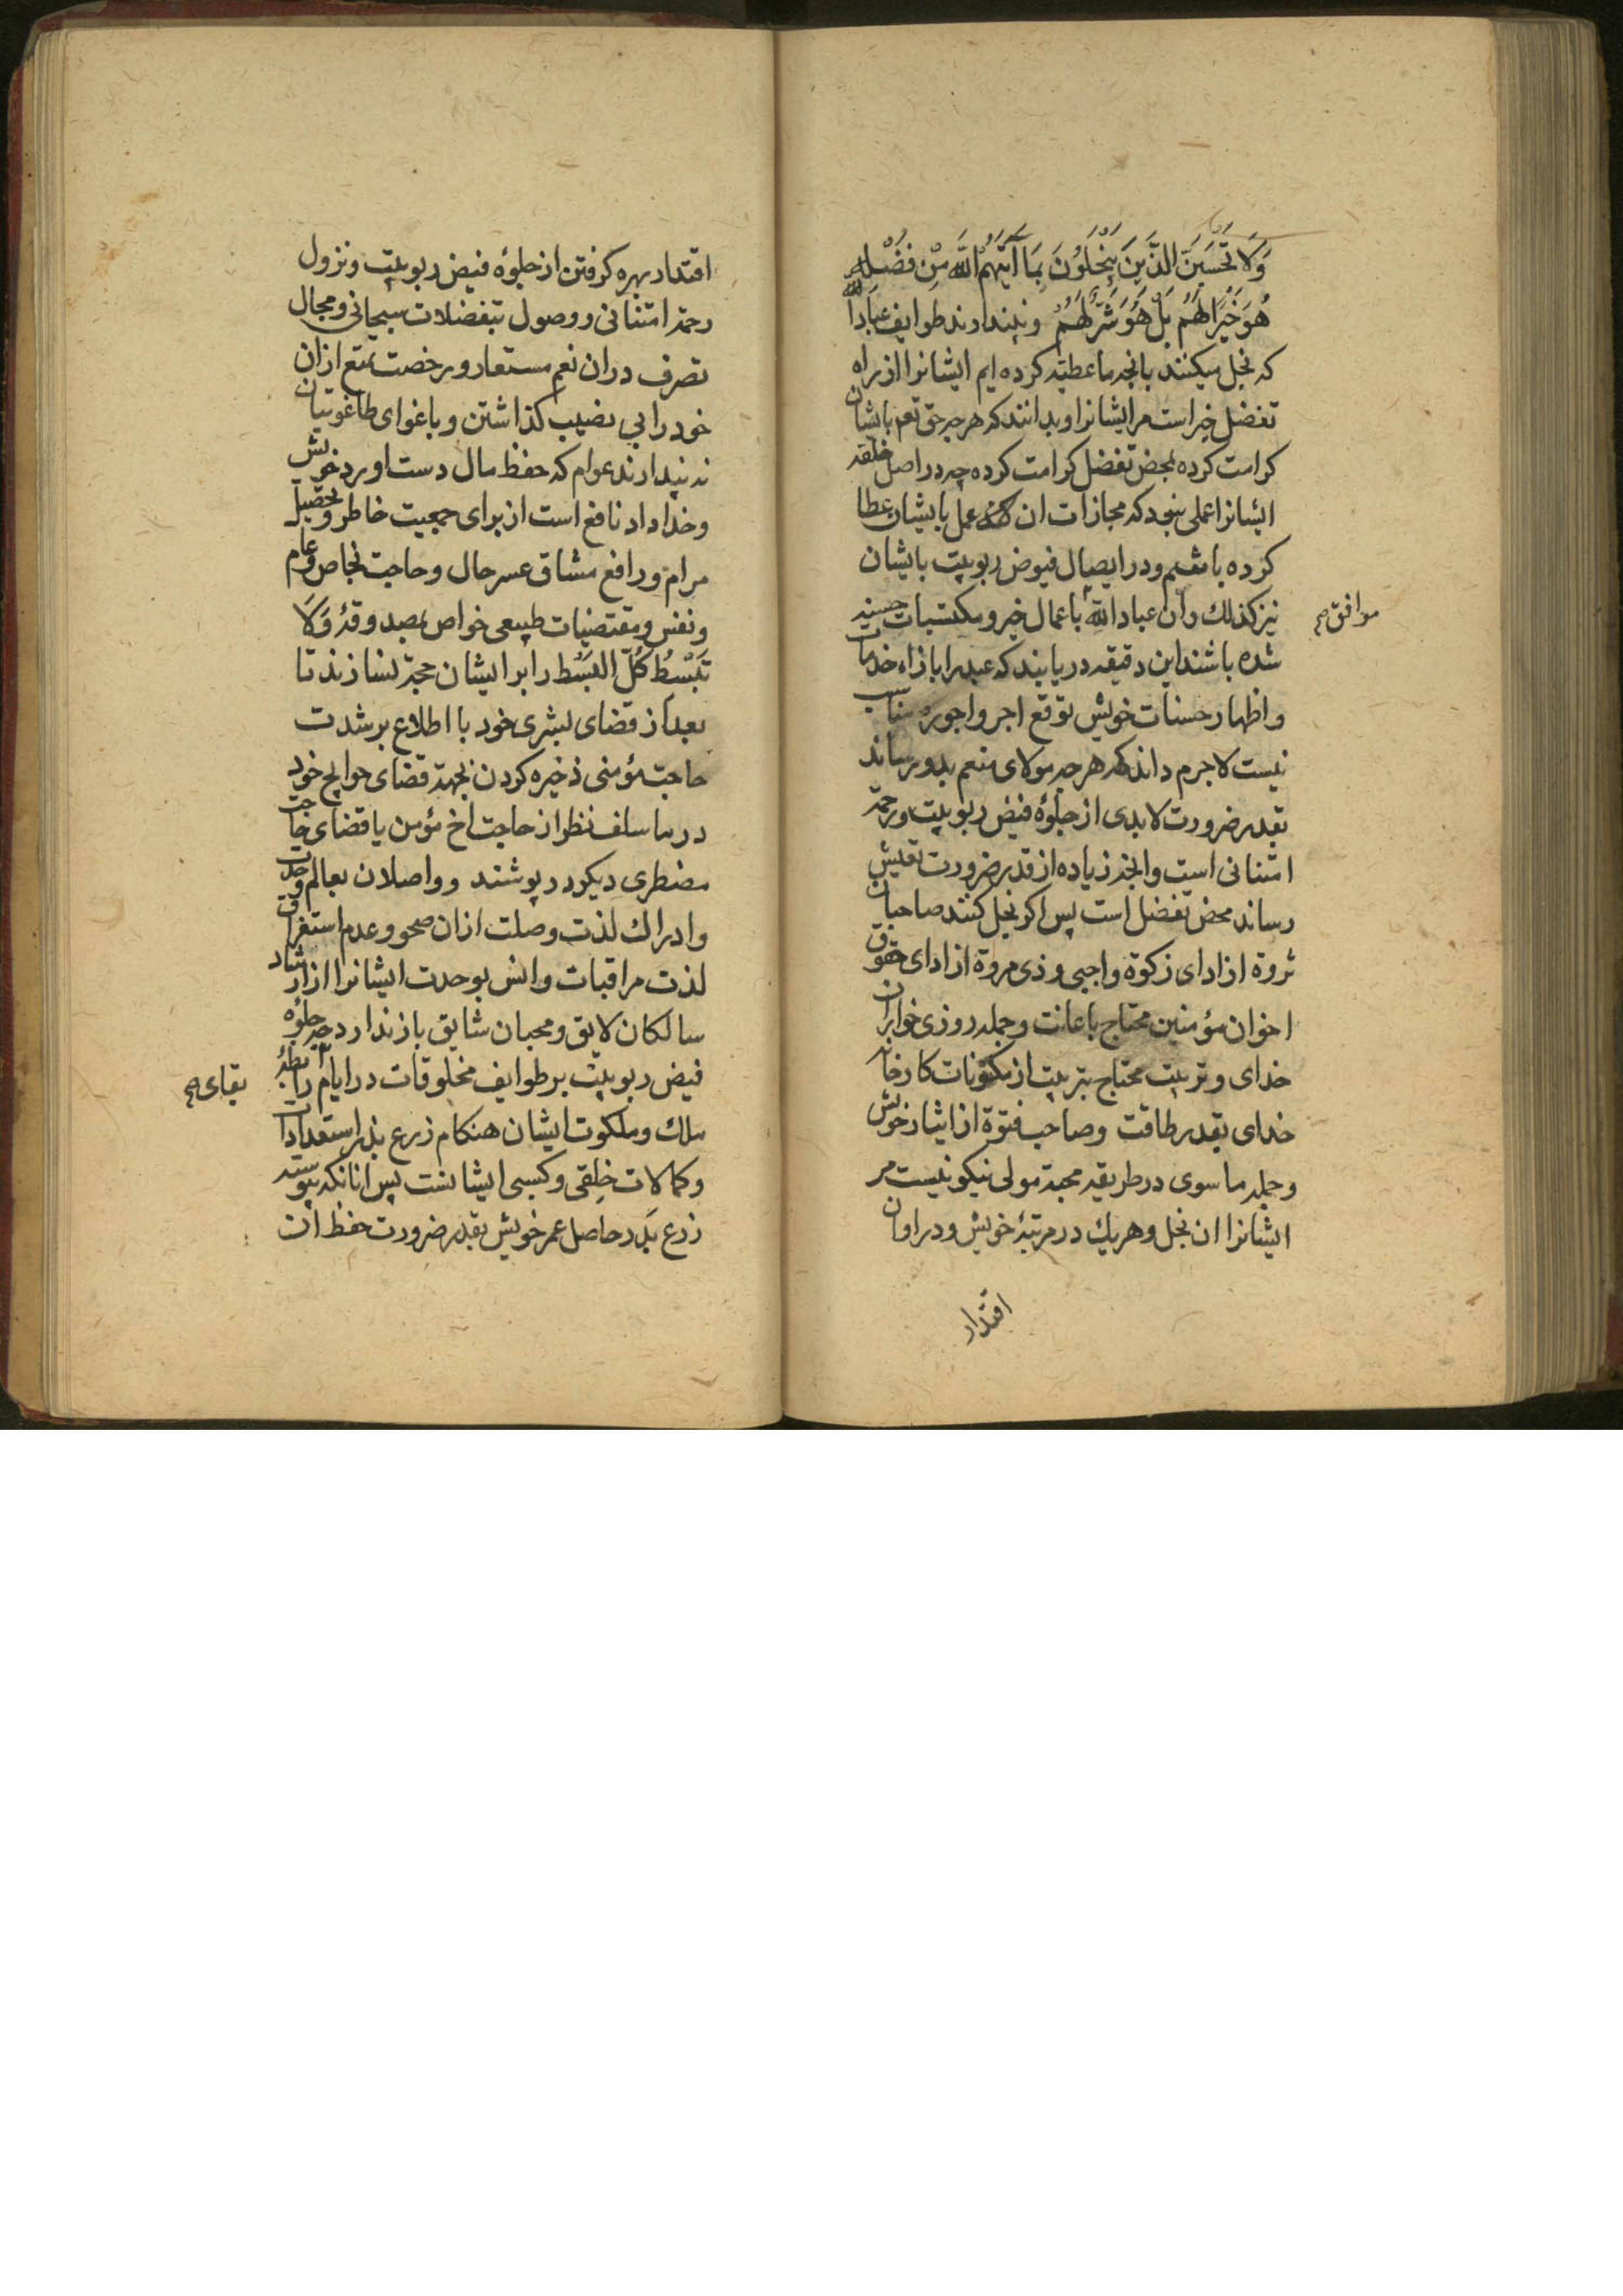 وَلَا تَحْسَبَنَّ الَّذِينَ يَبْخَلُونَ بِمَا آتَيهُمُ اللَّهُ مِنْ فَضْلِهِ
هُوَ خَيْرًا لَهُمْ بَلْ هُوَ شَرٌّ لَهُمْ و نپندارند طوایف عباد الله
که بخل میکنند بانچه ما عطیّه کرده ایم ایشانرا از راه
تفضل خیر است مر ایشانرا و بدانند که هر چه حق تعم بایشان
کرامت کرده بمحض تفضل کرامت کرده چه در اصل خلقه
ایشانرا عملی نبود که مجازات ان عمل بایشان عطا
کرده باشم و در ایصال فیوض ربوبیت بایشان
نیز کذلك وان عباد الله باعمال خیر و مکتسبات حسنه
موافق صح
شده باشند این دقیقه دریابند که عبد را بازاء خدمات
و اظهار حسنات خویش توقع اجر و اجوره مناسب
نیست لاجرم داند که هر چه مولای منعم بدو رساند
بقدر ضرورت لابدی از جلوهٔ فیض ربوبیت و رحمة
امتنانی است وانچه زیاده از قدر ضرورت تعیش
رساند محض تفضل است پس اکر بخل کنند صاحبان
ثروة از ادای زکوة واجبی و ذی مروة از ادای حقوق
اخوان مؤمنین محتاج باعانت و جمله روزی خواران
خدای و تربیت محتاج بتربیت از مکنونات کارخانه
خدای بقدر طاقت و صاحب فتوة از ایثار خویش
و جمله ما سوی در طریقه محبة مولی نیکو نیست مر
ایشانرا ان بخل و هریك در مرتبهٔ خویش و در اوان
اقتدار
اقتدار بهره کرفتن از جلوهٔ فیض ربوبیت و نزول
رحمة امتنانی و وصول بتفضلات سبحانی و مجال
تصرف در ان نعم مستعار و رخصت تمتع ازان
خود را بی نصیب کذاشتن و باغوای طاغوتیان
نه پندارند عوام که حفظ مال دست اورد خویش
و خداداد نافع است از برای جمعیت خاطر و تحصیل
مرام و رافع مشاق عسر حال و حاجت بخاص و عام
و نفس و مقتضیات طبیعی خواص بصدوقهٔ وَلَا
تَبْسُطْ كُلَّ الْبَسْطِ را بر ایشان حجة نسازند تا
بعد از قضای بشری خود با اطلاع بر شدت
حاجت مؤمنی ذخیره کردن بجهة قضای حوایج خود
در ما سلف نظر از حاجت اخ مؤمن یا قضای حاجت
مضطری دیکر در پوشند و واصلان بعالم وحدت
و ادراك لذت وصلت ازان صحو و عدم استغراق
لذت مراقبات و انس بوحدت ایشانرا از ارشاد
سالکان لایق و محبان شایق باز ندارد چه جلوهٔ
فیض ربوبیت بر طوایف مخلوقات در ایام رابطهٔ
بقای صح
ملك و ملکوت ایشان هنکام زرع بذر استعدادات
و کمالات خلقی و کسبی ایشانست پس انانکه پیوسته
زرع بذر حاصل عمر خویش بقدر ضرورت حفظ ان